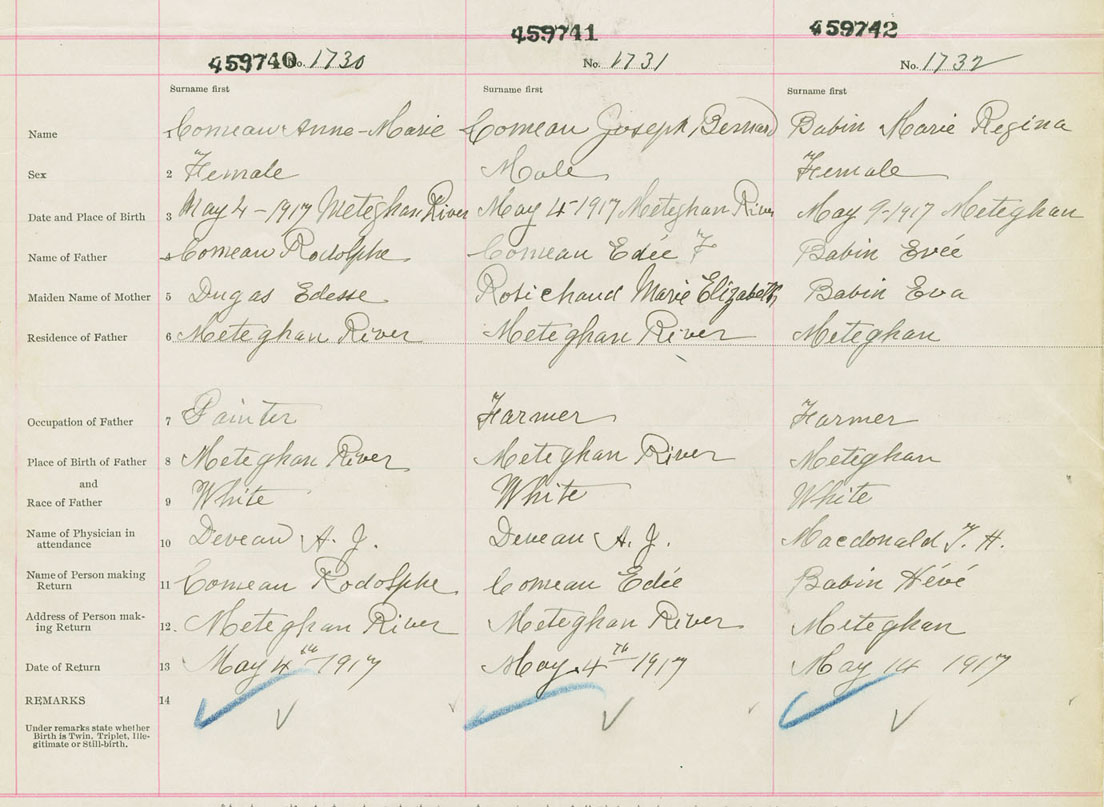 459740 459741 459742
No. 1730 No. 1731 No. 1732
Surname first Surname first Surname first
Name 1 Comeau Anne-Marie Comeau Joseph Bernard Babin Marie Regina
Sex 2 Female Male Female
Date and Place of Birth 3 May 4-1917 Meteghan River May 4-1917 Meteghan River May 9-1917 Meteghan
Name of Father 4 Comeau Rodolphe Comeau Edée F Babin Evée
Maiden Name of Mother 5 Dugas Edesse Robichaud Marie Elizabeth Babin Eva
Residence of Father 6 Meteghan River Meteghan River Meteghan
Occupation of Father 7 Painter Farmer Farmer
Place of Birth of Father 8 Meteghan River Meteghan River Meteghan
and
Race of Father 9 White White White
Name of Physician in
attendance 10 Deveau A. J. Deveau A. J. Macdonald T. H.
Name of Person making
Return 11 Comeau Rodolphe Comeau Edée Babin Hévé
Address of Person mak-
ing Return 12. Meteghan River Meteghan River Meteghan
Date of Return 13 May 4th 1917 May 4th 1917 May 14 1917
REMARKS 14
Under remarks state whether
Birth is Twin, Triplet, Ille-
gitimate or Still-birth.